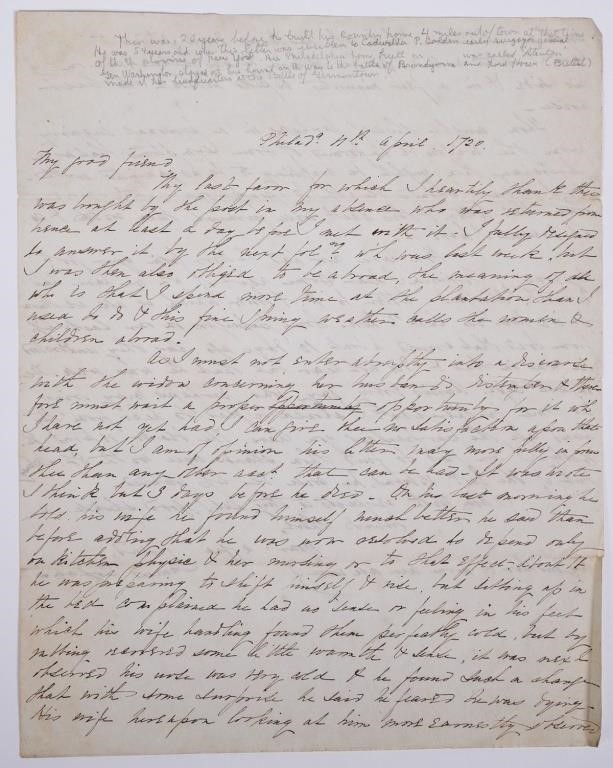 This was 20 years before he built his Country home 4 miles out of town at that time
He was 54 years old when this letter was written to Cadwallader P. Colden early surveyor general
of the Province of New York. His Philadelphia home built in was called Stenton
Gen Washington stopped at his house on the way to the battle of Brandywine and Lord Howe (British)
made it his headquarters at the Battle of Germantown
Philada. 11th April 1720.
My good friend
Thy last favor for which I heartily thank thee
was brought by the post in my absence who was returned from
hence at least a day before I met with it. I fully designed
to answer it by the next follg. wh was last week, but
I was then also obliged to be abroad, the meaning of all
wh is that I spend more time at the plantation than I
used to do & this fine Spring weather calls the women &
children abroad.
As I must not enter abruptly into a discourse
with the widow concerning her husband's distemper & there
fore must wait a proper opportunity for it wh
I have not yet had I can give thee no satisfaction upon that
head, but I am of opinion his letter may more fully inform
thee than any other acct that can be had - It was wrote
I think but 3 days before he died - On his last morning he
told his wife he found himself much better he said than
before adding that he was now resolved to depend only
on Kitchen Physic & her nursing or to that effect - About 11
he was preparing to shift himself & rise, but sitting up in
the bed complained he had no sense or feeling in his feet
which his wife handling found them perfectly cold, but by
rubbing recovered some little warmth & sense, it was next
observed his nose was very cold & he found such a change
that with some surprise he said he feared he was dying -
His wife hereupon looking at him more earnestly observed